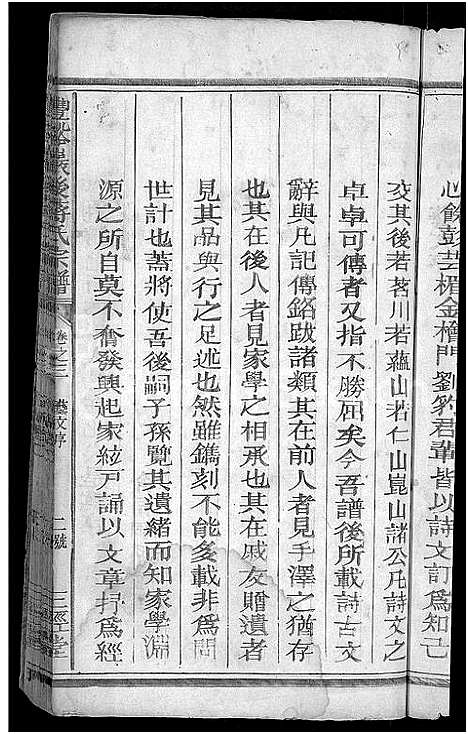 心餘彭芸楣金檜門劉豹君軰皆以詩文訂為知己
交其後若茗川若蘊山若仁山崑山諸公凡詩文之
卓卓可傳者又指不勝屈矣今吾譜後所載詩古文
辭與凡記傳銘跋諸類其在前人者見手澤之猶存
也其在後人者見家學之相承也其在戚友贈遺者
見其品與行之足述也然雖鐫刻不能多載非為問
世計也蓋將使吾後嗣子孫覽其遺緒而知家學淵
源之所自莫不奮發興起家絃戸誦以文章掃為經
後蔣氏宗譜 卷之三 藝文序 二號 三徑堂